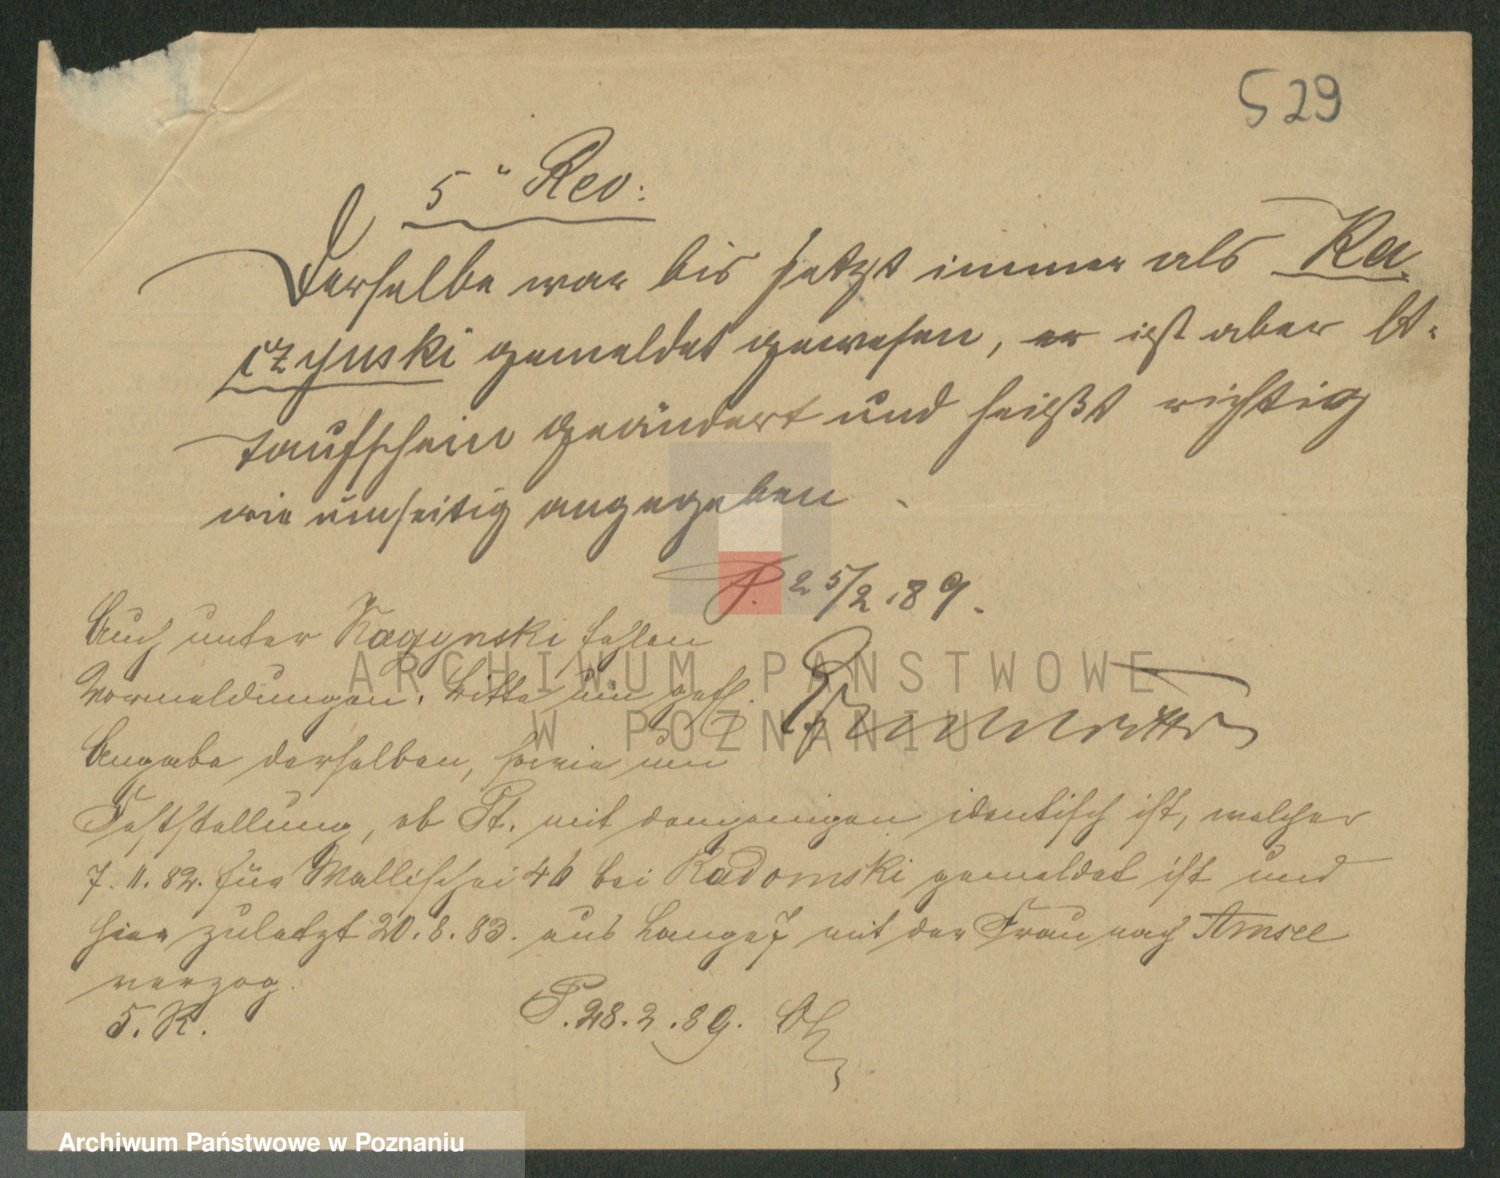 529
5" Rev.
Derselbe war bis jetzt immer als Ra
czynski gemeldet gewesen, er ist aber lt.
Taufschein geändert und heißt richtig
wie umseitig angegeben.
P. 25/2.89.
Auch unter Raczynski fehlen
Vormeldungen. Bitte um gefl.
Angabe derselben, sowie um
Feststellung, ob P. mit demjenigen identisch ist, welcher
7.11.82. für Wallischei 46 bei Radomski gemeldet ist und
hier zuletzt 20.8.83. aus Lange 7 mit der Frau nach Amsee
verzog.
5. R.
P. 28.2.89.
ARCHIWUM PAŃSTWOWE
W POZNANIU
Archiwum Państwowe w Poznaniu